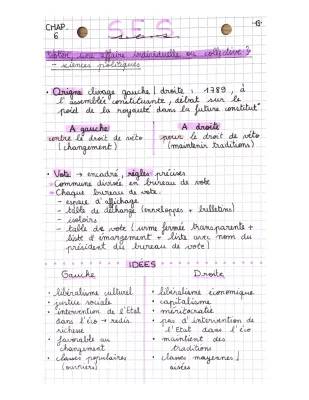 CHAP 6
SES
Voter, une affaire individuelle ou collective ?
- sciences politiques
• Origine clivage gauche | droite : 1789, à
l'assemblée constituante, débat sur le
poid de la royauté dans la future constitut°
A gauche
A droite
contre le droit de véto
(changement)
pour le droit de véto
(maintenir traditions)
• Vote → encadré, règles précises
- Commune divisée en bureau de vote
- Chaque bureau de vote
- espace d'affichage
- table de décharge (enveloppes + bulletins)
- isoloirs
- table de vote (urne fermée transparente +
liste d'émargement + liste avec nom du
président du bureau de vote)
IDÉES
Gauche
• libéralisme culturel
• justice sociale
• intervention de l'Etat
dans l'éco → redis.
richesse
• favorable au
changement
• classes populaires
(ouvriers)
Droite
• libéralisme économique
• capitalisme
• méritocratie
• pas d'intervention de
l'Etat dans l'éco
• maintient des
traditions
• classes moyennes |
aisées